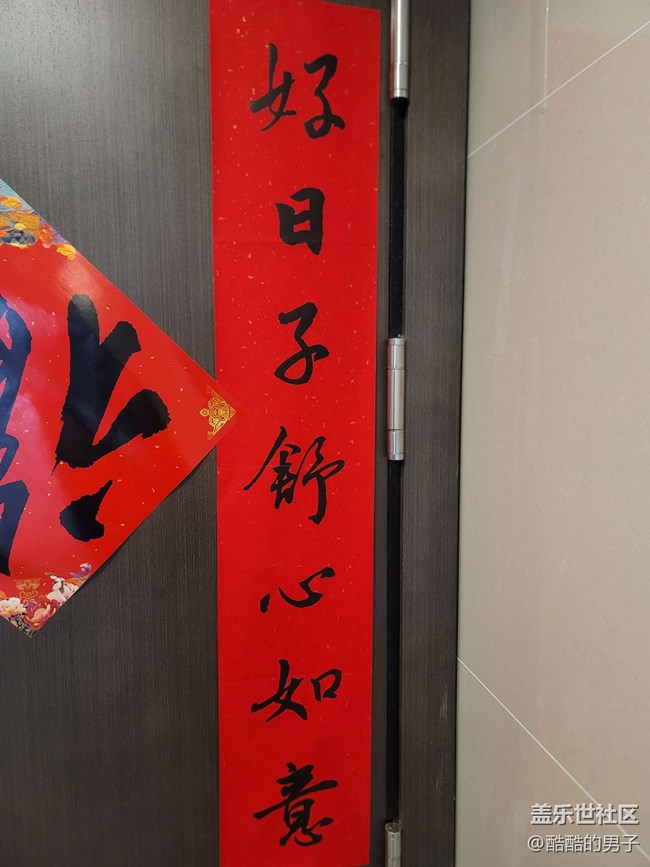 好日子舒心如意
盖乐世社区
@酷酷的男子